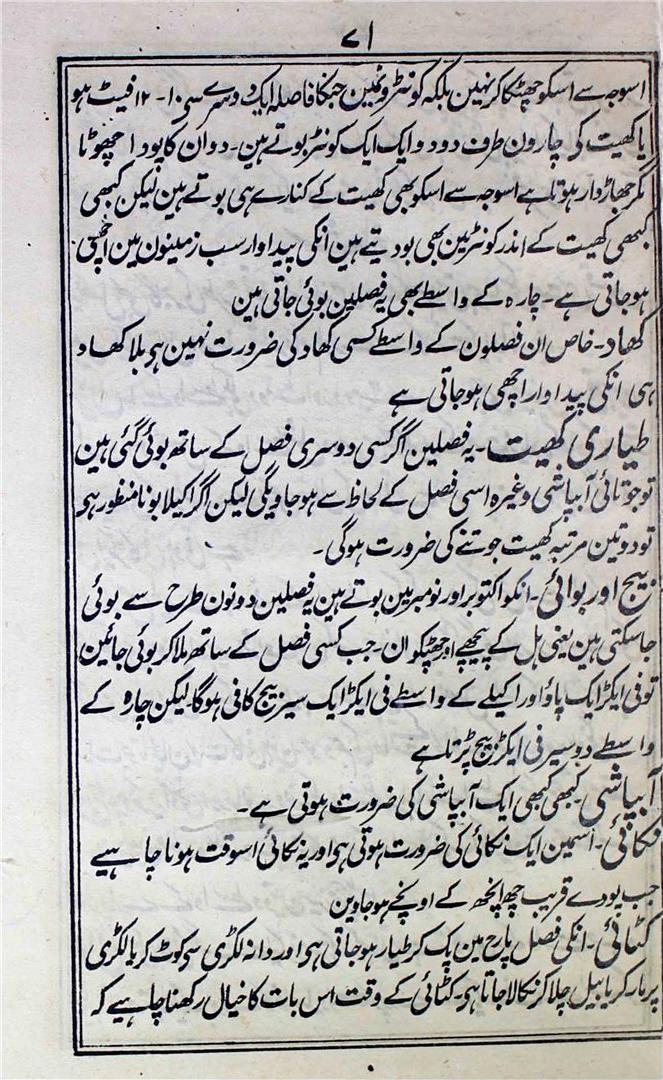 ۷۱
اسوجہ سے اسکو چھٹکا کر نہین بلکہ کونٹرونمین جنکا فاصلہ ایک دوسرے سی ۱۰-۱۲ فیٹ ہو
یا کھیت کی چارون طرف دو دو ایک ایک کونٹر بوتے ہین۔ دوان کا پودا چھوٹا
مگر جھاڑدار ہوتا ہے اسوجہ سے اسکو بھی کھیت کے کنارے ہی بوتے ہین لیکن کبھی
کبھی کھیت کے اندر کونٹر مین بھی بو دیتے ہین انکی پیداوار سب زمینون مین اچھی
ہو جاتی ہے۔ چارہ کے واسطے بھی یہ فصلین بوئی جاتی ہین
کھاد۔ خاص ان فصلون کے واسطے کسی کھاد کی ضرورت نہین ہی بلا کھاد
ہی انکی پیداوار اچھی ہو جاتی ہے
طیاری کھیت۔ یہ فصلین اگر کسی دوسری فصل کے ساتھ بوئی گئی ہین
تو جوتائی آبپاشی وغیرہ اسی فصل کے لحاظ سے ہو جاویگی لیکن اگر اکیلا بونا منظور ہی
تو دو تین مرتبہ کھیت جوتنے کی ضرورت ہوگی۔
بیج اور بوائی۔ انکو اکتوبر اور نومبر مین بوتے ہین یہ فصلین دونون طرح سے بوئی
جا سکتی ہین یعنی ہل کے پیچھے اور چھٹکوان۔ جب کسی فصل کے ساتھ ملا کر بوئی جائین
تو فی ایکڑ ایک پاؤ اور اکیلے کے واسطے فی ایکڑ ایک سیر بیج کافی ہوگا۔ لیکن چارہ کے
واسطے دو سیر فی ایکڑ بیج پڑتا ہے
آبپاشی۔ کبھی کبھی ایک آبپاشی کی ضرورت ہوتی ہے۔
نکائی۔ اسمین ایک نکائی کی ضرورت ہوتی ہی اور یہ نکائی اسوقت ہونا چاہیے
جب پودے قریب چھ انچھ کے اونچے ہو جاوین
کٹائی۔ انکی فصل مارچ مین پک کر طیار ہو جاتی ہی اور دانہ لکڑی سی کوٹ کر یا لکڑی
پر مار کر یا بیل چلا کر نکالا جاتا ہی۔ کٹائی کے وقت اس بات کا خیال رکھنا چاہیے کہ